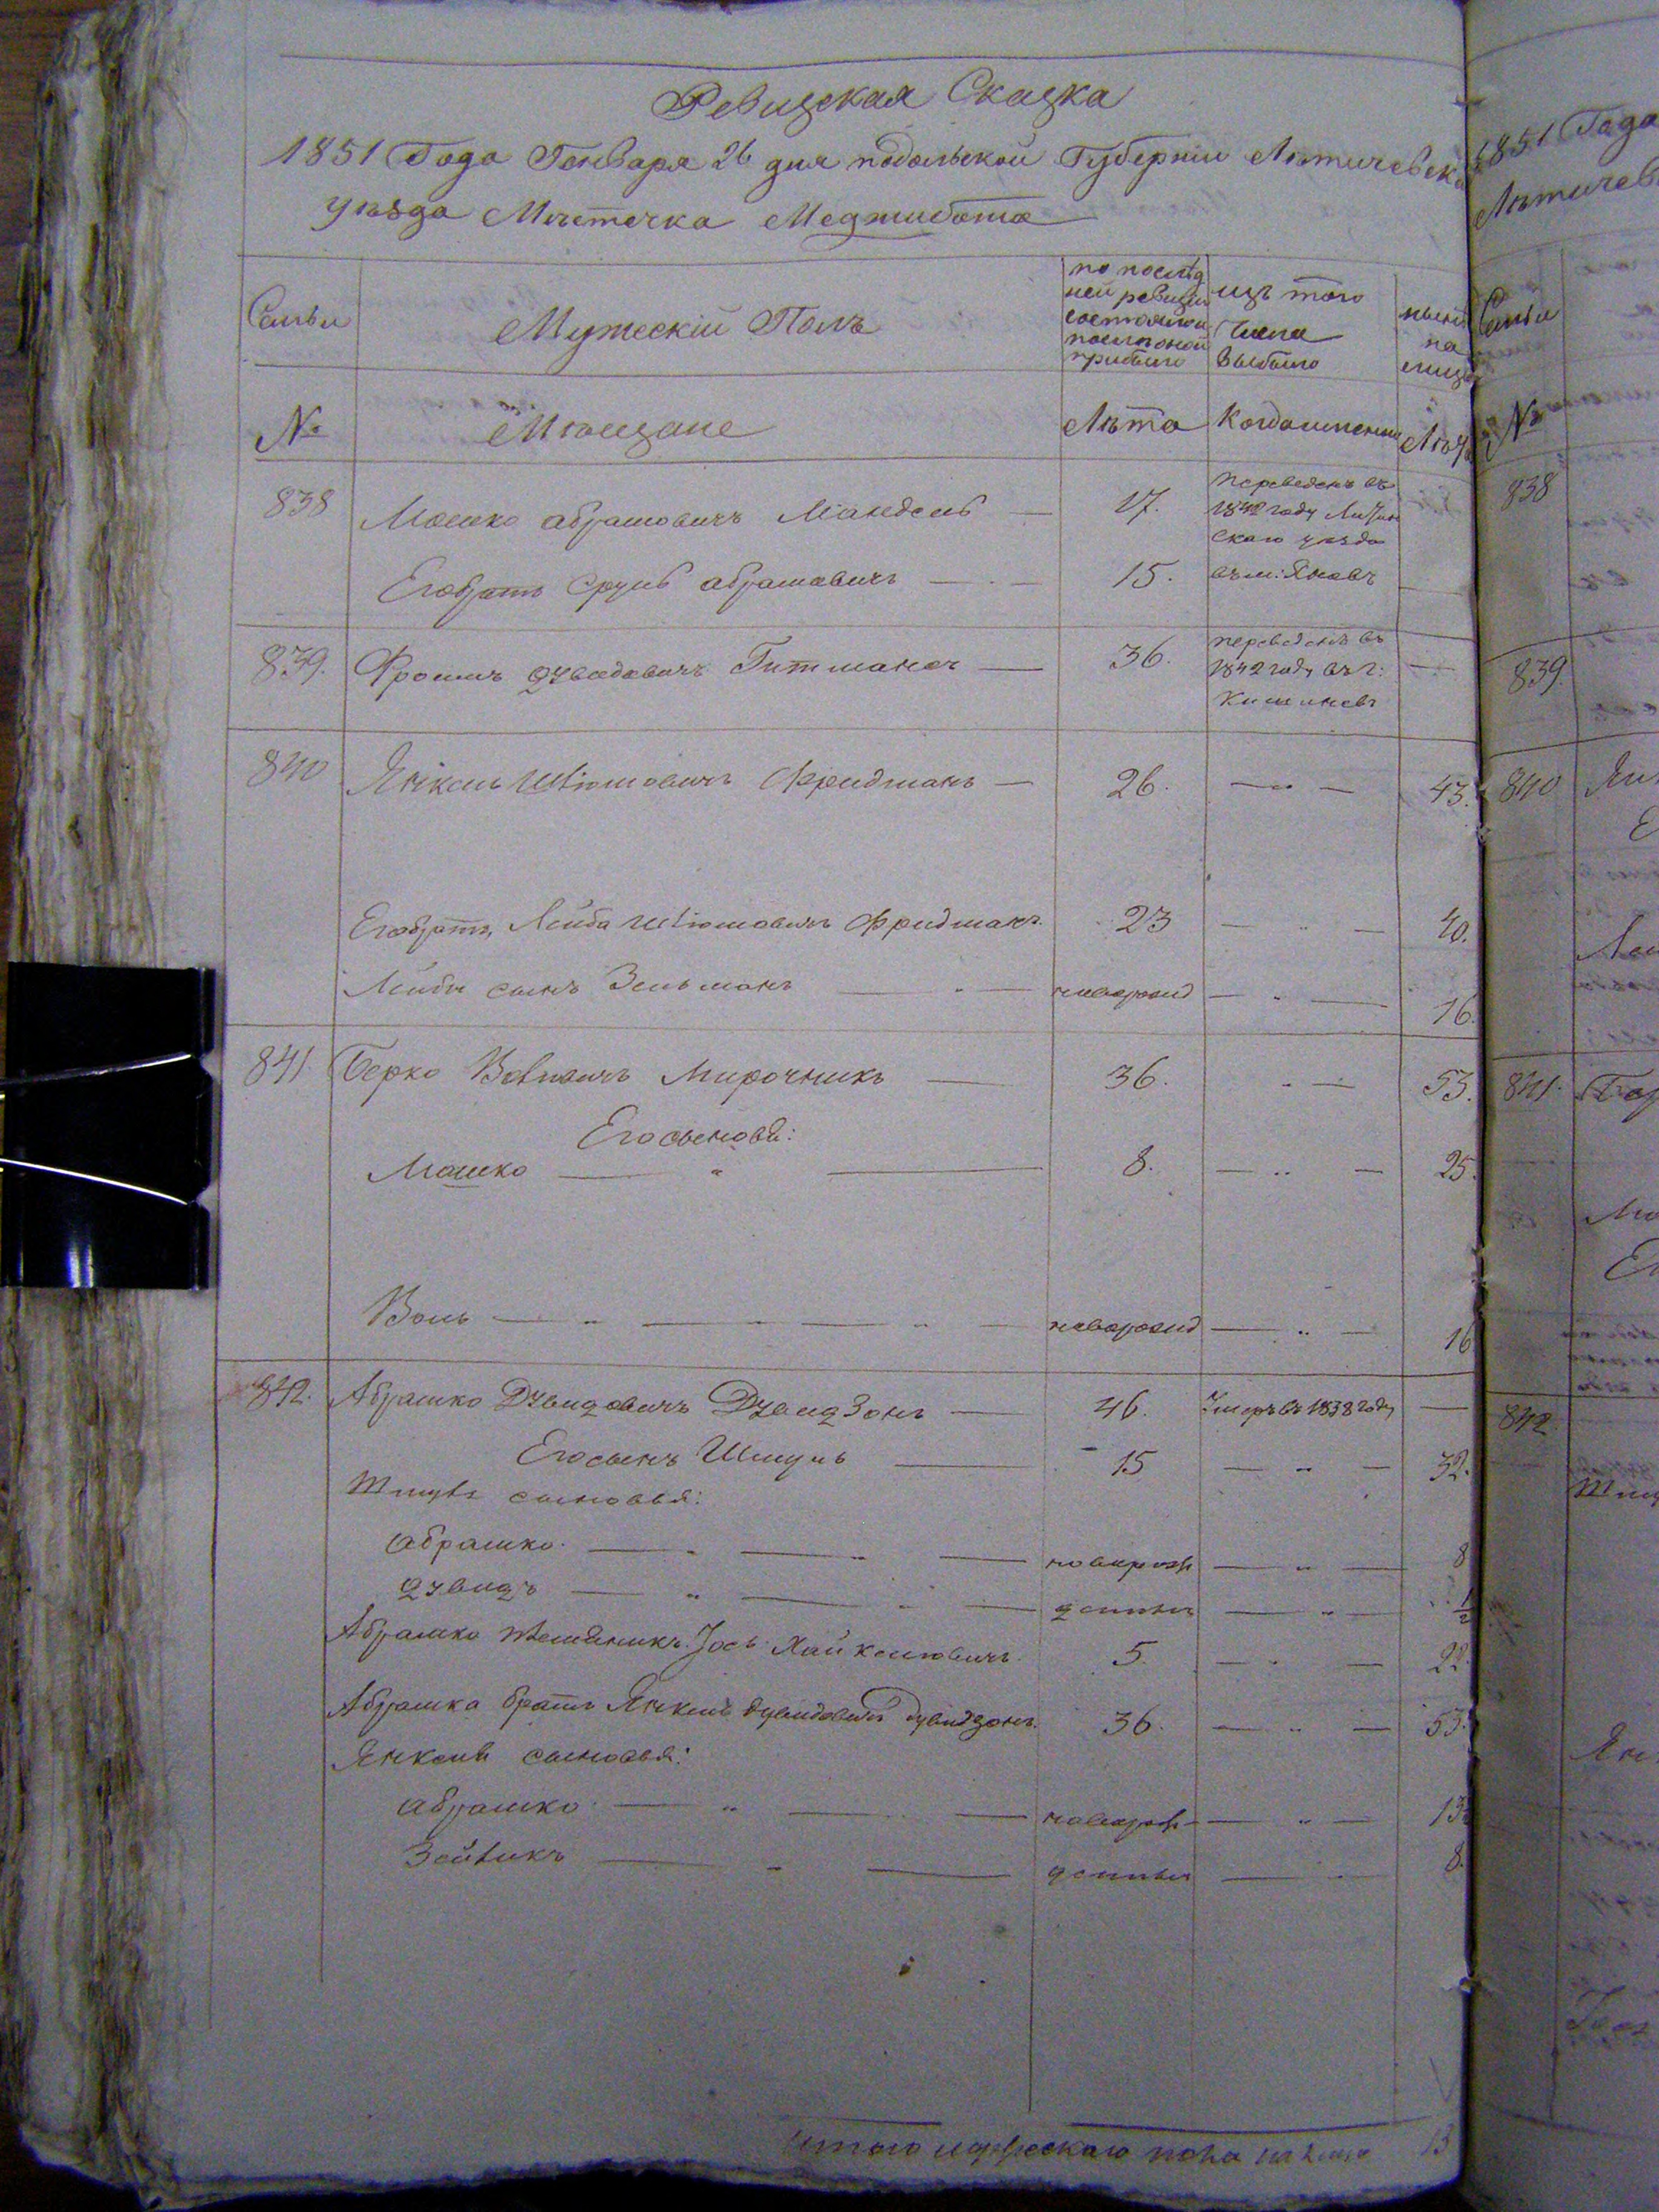 Ревизская Сказка
1851 Года Генваря 26 дня подольской Губернии Летичевска
уѣзда Мѣстечка Меджибожа
Семьи
Мужескій Полъ
по послѣд
ней ревизіи
состояло и
послѣ оной
прибыло
изъ того
Числа
выбыло
нынѣ
на
лицо
№
Мѣщане
Лѣта
Когда именно
Лѣта
838
Мошко абрамовичъ Мандель
17.
переведенъ въ
1842 году Литин
скаго уѣзда
Его братъ Сруль абрамовичъ
15.
въ м: Яновъ
839.
Фроимъ Дувидовичъ Гитманъ
36.
переведенъ въ
1842 году въ г:
Кишиневъ
840
Янкель Шліомовичъ Фридманъ
26.
43.
Его братъ Лейба Шліомовичъ Фридманъ
23
40.
Лейбы сынъ Зельманъ
новорожд
16.
841.
Берко Вольковичъ Мирочникъ
36.
53.
Его сыновья:
Мошко
8.
25.
Воль
новорожд
16
842.
Абрашко Дувидовичъ Дувидзонъ
46.
Умеръ въ 1838 году
Его сынъ Шмуль
15
32.
Шмуля сыновья:
абрашко
новорож
8
Дувидъ
1/2
Абрашко племянникъ Іось Хайкелювичъ
5.
22.
Абрашка братъ Янкель Дувидовичъ Дувидзонъ
36.
53.
Янкеля сыновья:
абрашко
новорож
13
Зейликъ
8.
итого мужескаго пола на лицо
13
1851 Года
Летичев
Семьи
№
838
839.
840
Ян
841.
Бер
842
Шму
Ян